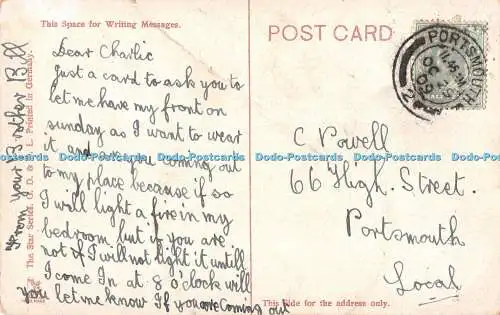 This Space for Writing Messages.
Dear Charlie
Just a card to ask you to
let me have my front on
sunday as I want to wear
it and are you coming out
to my place because if so
I will light a fire in my
bedroom but if you are
not I will not light it untill
I come In at 8 o'clock will
you let me know If you are coming out
From your Brother Bill
The Star Series. G. D. & D. L. Printed in Germany.
POST CARD
PORTSMOUTH
OC
09
2
C Powell
66 High. Street.
Portsmouth
Local
This side for the address only.
Dodo-Postcards Dodo-Postcards Dodo-Postcards Dodo-Postcards Dodo-Postcards